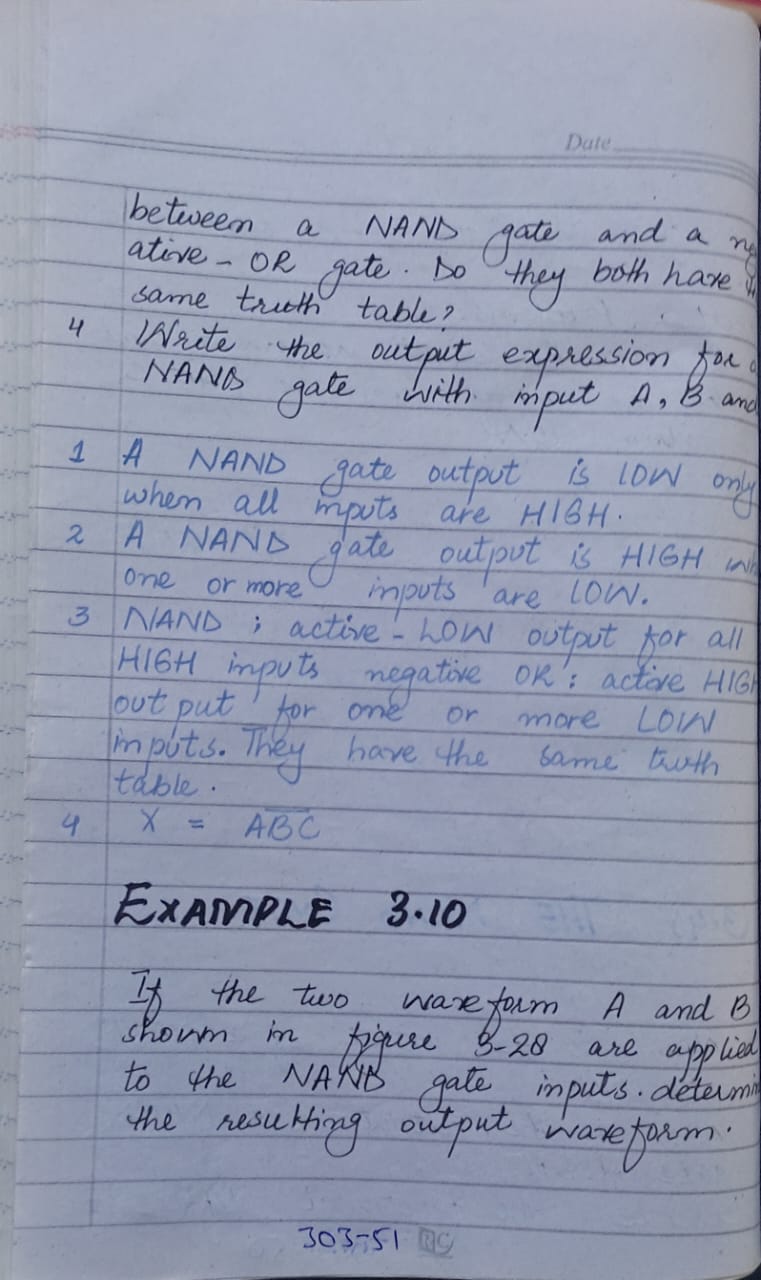 Date
between a NAND gate and a neg
ative - OR gate. Do they both have
same truth table?
4 Write the output expression for
NAND gate with input A, B and
1 A NAND gate output is LOW only
when all inputs are HIGH.
2 A NAND gate output is HIGH wh
one or more inputs are LOW.
3 NAND ; active - LOW output for all
HIGH inputs negative OR : active HIGH
out put for one or more LOW
inputs. They have the same truth
table.
4 X = A̅B̅C̅
EXAMPLE 3.10
If the two waveform A and B
shown in figure 3-28 are applied
to the NAND gate inputs. determi
the resulting output waveform.
303-51 RC